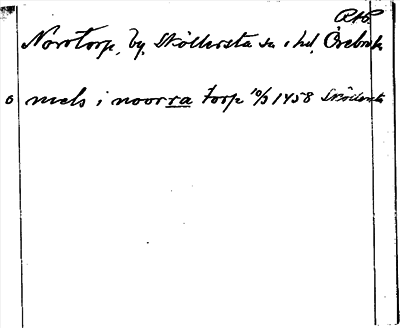 Norrtorp, by, Sköllersta sn o. hd, Örebro
o mels i noorra torp 10/3 1458 Sköllersta